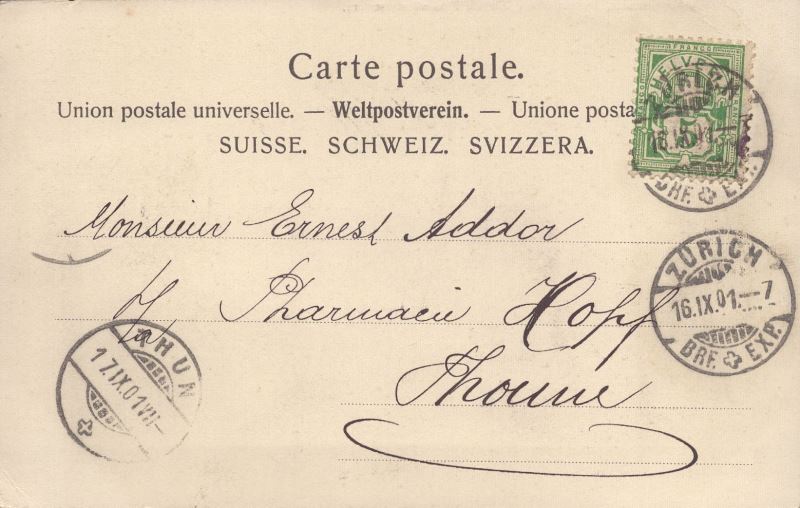 Carte postale.
Union postale universelle. — Weltpostverein. — Unione posta
SUISSE. SCHWEIZ. SVIZZERA.
FRANCO
HELVETIA
5
16.IX.01.–7
BRF. EXP.
Monsieur Ernest Addor
ZÜRICH
16.IX.01.–7
BRF. EXP.
Pharmacie Hopf
THUN
17.IX.01.VII–
Thoune